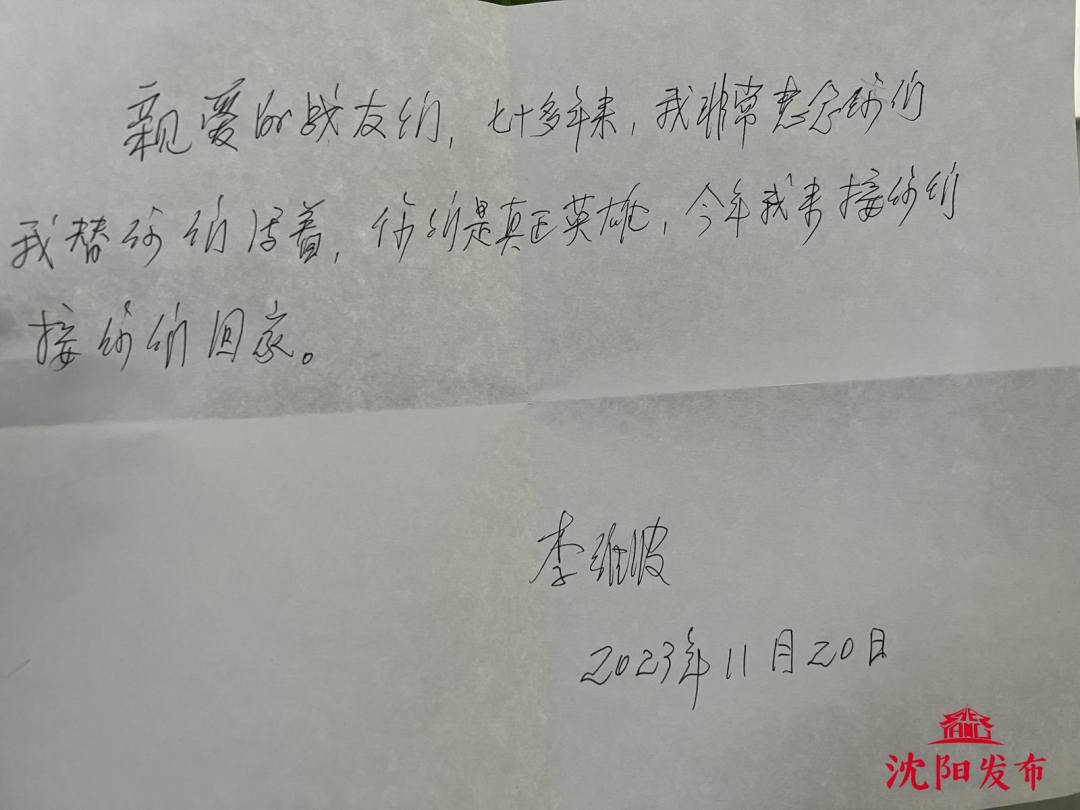 亲爱的战友们，七十多年来，我非常想念你们
我替你们活着，你们是真正英雄，今年我来接你们
接你们回家。
李维波
2023年11月20日
沈阳发布